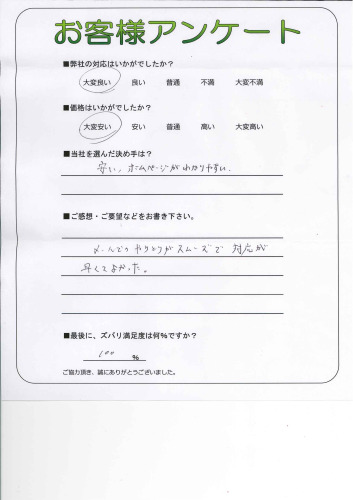 お客様アンケート
■弊社の対応はいかがでしたか?
大変良い 良い 普通 不満 大変不満
■価格はいかがでしたか?
大変安い 安い 普通 高い 大変高い
■当社を選んだ決め手は?
安い、ホームページがわかりやすい.
■ご感想・ご要望などをお書き下さい。
メールでのやりとりがスムーズで 対応が
早くてよかった。
■最後に、ズバリ満足度は何%ですか?
100 %
ご協力頂き、誠にありがとうございました。